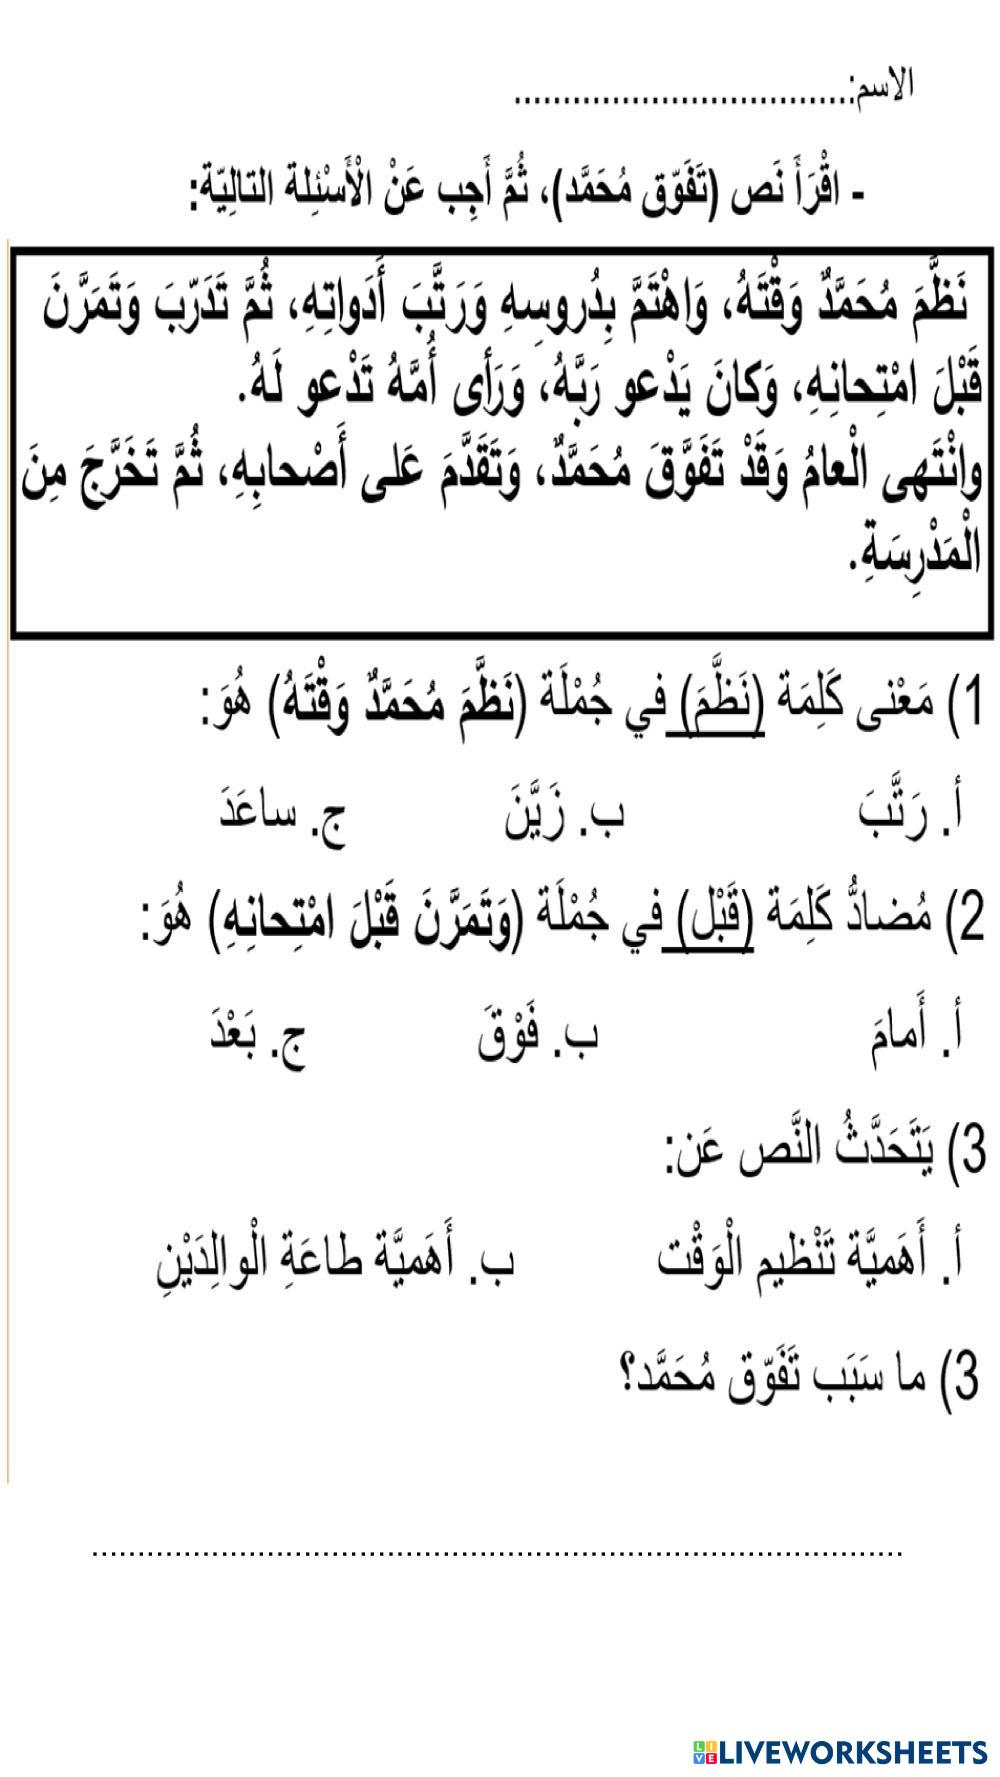 الاسم:..................................
- اقْرَأَ نَص (تَفَوّق مُحَمَّد)، ثُمَّ أَجِب عَنْ الْأَسْئِلة التالِيّة:
نَظَّمَ مُحَمَّدٌ وَقْتَهُ، وَاهْتَمَّ بِدُروسِهِ وَرَتَّبَ أَدَواتِهِ، ثُمَّ تَدَرّبَ وَتَمَرَّنَ
قَبْلَ امْتِحانِهِ، وَكانَ يَدْعو رَبَّهُ، وَرَأى أُمَّهُ تَدْعو لَهُ.
وانْتَهى الْعامُ وَقَدْ تَفَوَّقَ مُحَمَّدٌ، وَتَقَدَّمَ عَلى أَصْحابِهِ، ثُمَّ تَخَرَّجَ مِنَ
الْمَدْرِسَةِ.
1) مَعْنى كَلِمَة (نَظَّمَ) في جُمْلَة (نَظَّمَ مُحَمَّدٌ وَقْتَهُ) هُوَ:
أ. رَتَّبَ ب. زَيَّنَ ج. ساعَدَ
2) مُضادُّ كَلِمَة (قَبْل) في جُمْلَة (وَتَمَرَّنَ قَبْلَ امْتِحانِهِ) هُوَ:
أ. أَمامَ ب. فَوْقَ ج. بَعْدَ
3) يَتَحَدَّثُ النَّص عَن:
أ. أَهَميَّة تَنْظيم الْوَقْت ب. أَهَميَّة طاعَةِ الْوالِدَيْنِ
3) ما سَبَب تَفَوّق مُحَمَّد؟
..................................................................................
LIVEWORKSHEETS